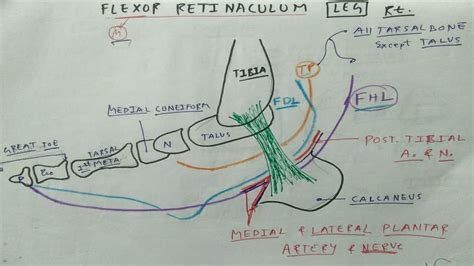 FLEXOR RETINACULUM LEG Rt.
M
All TARSAL BONE
Except TALUS
TP
TIBIA
FDL
FHL
MEDIAL CUNEIFORM
GREAT TOE
TARSAL
1st META.
N
TALUS
POST. TIBIAL
A. & N.
CALCANEUS
MEDIAL & LATERAL PLANTAR
ARTERY & NERVE